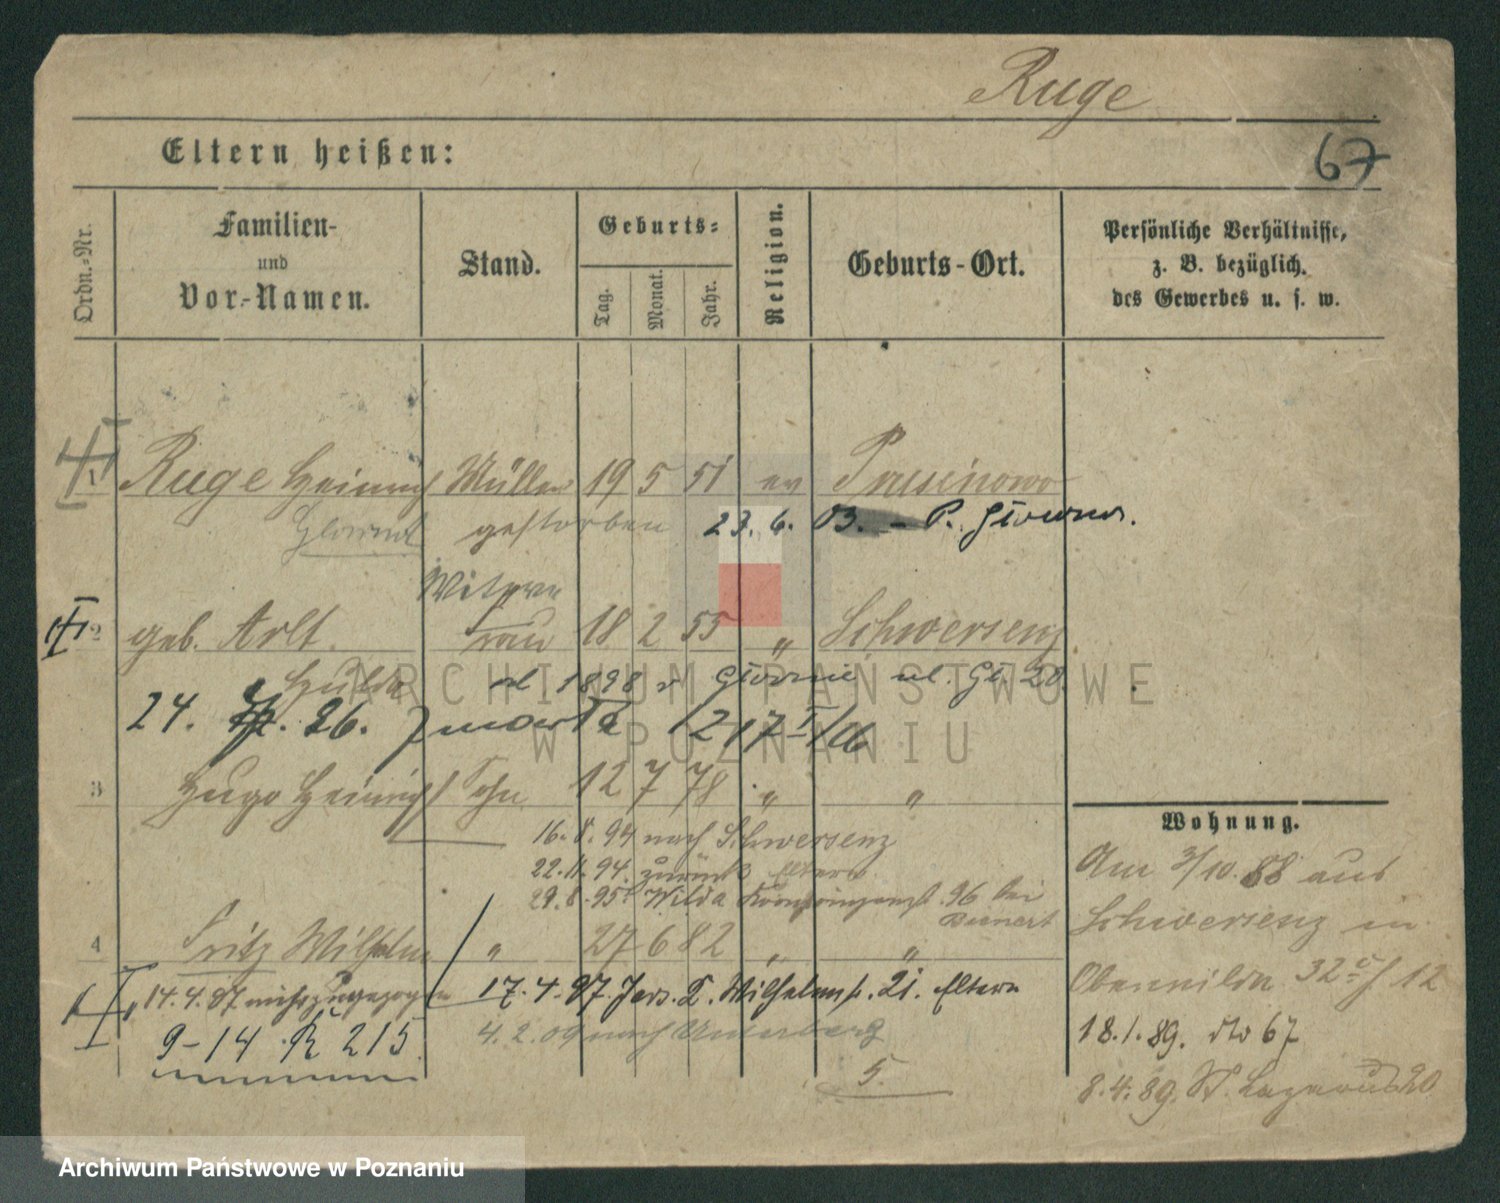 Ruge
67
Eltern heißen:
Ordn.-Nr.
Familien-
und
Vor-Namen.
Stand.
Geburts-
Tag.
Monat.
Jahr.
Religion.
Geburts-Ort.
Persönliche Verhältnisse,
z. B. bezüglich
des Gewerbes u. s. w.
1 Ruge Heinrich Müller 19 5 51 ev
gestorben 23. 6. 03. - P.
Witwe
2 geb. Arlt Frau 18 2 53 " Schwersenz
Hulda od 1898 ul. 20
24. 26. zmarła
3 Hugo Heinrich Sohn 12 7 78 " "
16. 8. 94 nach Schwersenz
22. 11. 94. zurück Eltern
29. 8. 95 Wilda 96 bei
4 Fritz Wilhelm " 27 6 82 " "
14. 4. 97 mit zugezogen 17. 4. 97. Jers. Wilhelmstr. 21. Eltern
9-14 K 215
4. 2. 09 nach
5.
Wohnung.
Am 3/10. 88 aus
Schwersenz in
Oberwilda 32 12
18. 1. 89. dto 67
8. 4. 89. St. Lazarus 20
ARCHIWUM PAŃSTWOWE
W POZNANIU
Archiwum Państwowe w Poznaniu